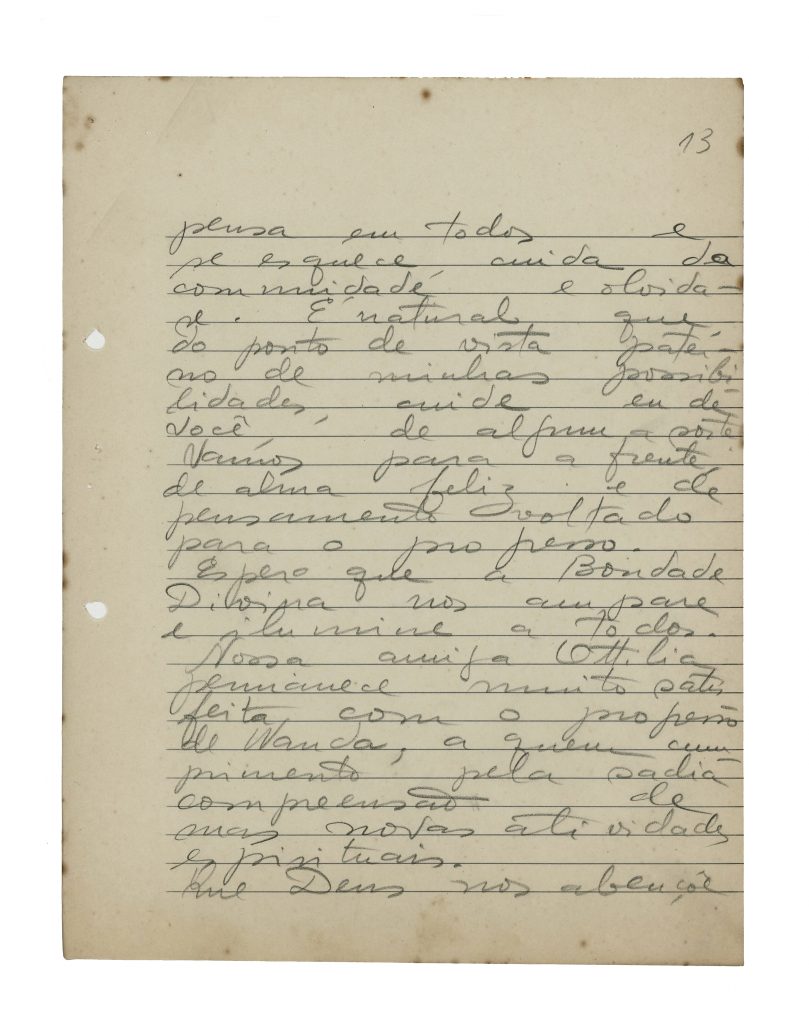 13
pensa em todos e
se esquece cuida da
comunidade e olvida-
se. É natural que
do ponto de vista pater-
no de minhas possibi
lidades, cuide eu de
você, de alguma sorte
Vamos para a frente,
de alma feliz e de
pensamento voltado
para o progresso.
Espero que a Bondade
Divina nos ampare
e ilumine a todos.
Nossa amiga Ottilia
permanece muito satis
feita com o progresso
de Wanda, a quem cum
primento pela sadia
compreensão de
mas novas atividades
espirituais.
Que Deus nos abençõe